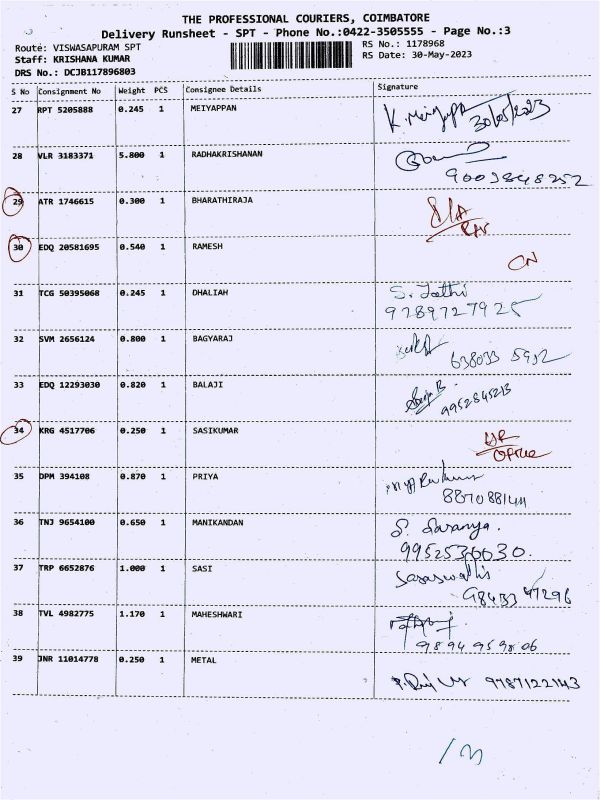 THE PROFESSIONAL COURIERS, COIMBATORE
Delivery Runsheet - SPT - Phone No.:0422-3505555 - Page No.:3
Route: VISWASAPURAM SPT
RS No.: 1178968
Staff: KRISHANA KUMAR
RS Date: 30-May-2023
DRS No.: DCJB117896803
S No Consignment No Weight PCS Consignee Details Signature
27 RPT 5205888 0.245 1 MEIYAPPAN 30/05/2023
28 VLR 3183371 5.800 1 RADHAKRISHANAN
9003848252
29 ATR 1746615 0.300 1 BHARATHIRAJA
30 EDQ 20581695 0.540 1 RAMESH CN
31 TCG 50395068 0.245 1 DHALIAH S. Jothi
9789727925
32 SVM 2656124 0.800 1 BAGYARAJ
33 EDQ 12293030 0.820 1 BALAJI
9952845213
34 KRG 4517706 0.250 1 SASIKUMAR
Office
35 DPM 394108 0.870 1 PRIYA
36 TNJ 9654100 0.650 1 MANIKANDAN S. Saranya.
9952530030.
37 TRP 6652876 1.000 1 SASI
98433 47296
38 TVL 4982775 1.170 1 MAHESHWARI
9894 959806
39 JNR 11014778 0.250 1 METAL 9787122143